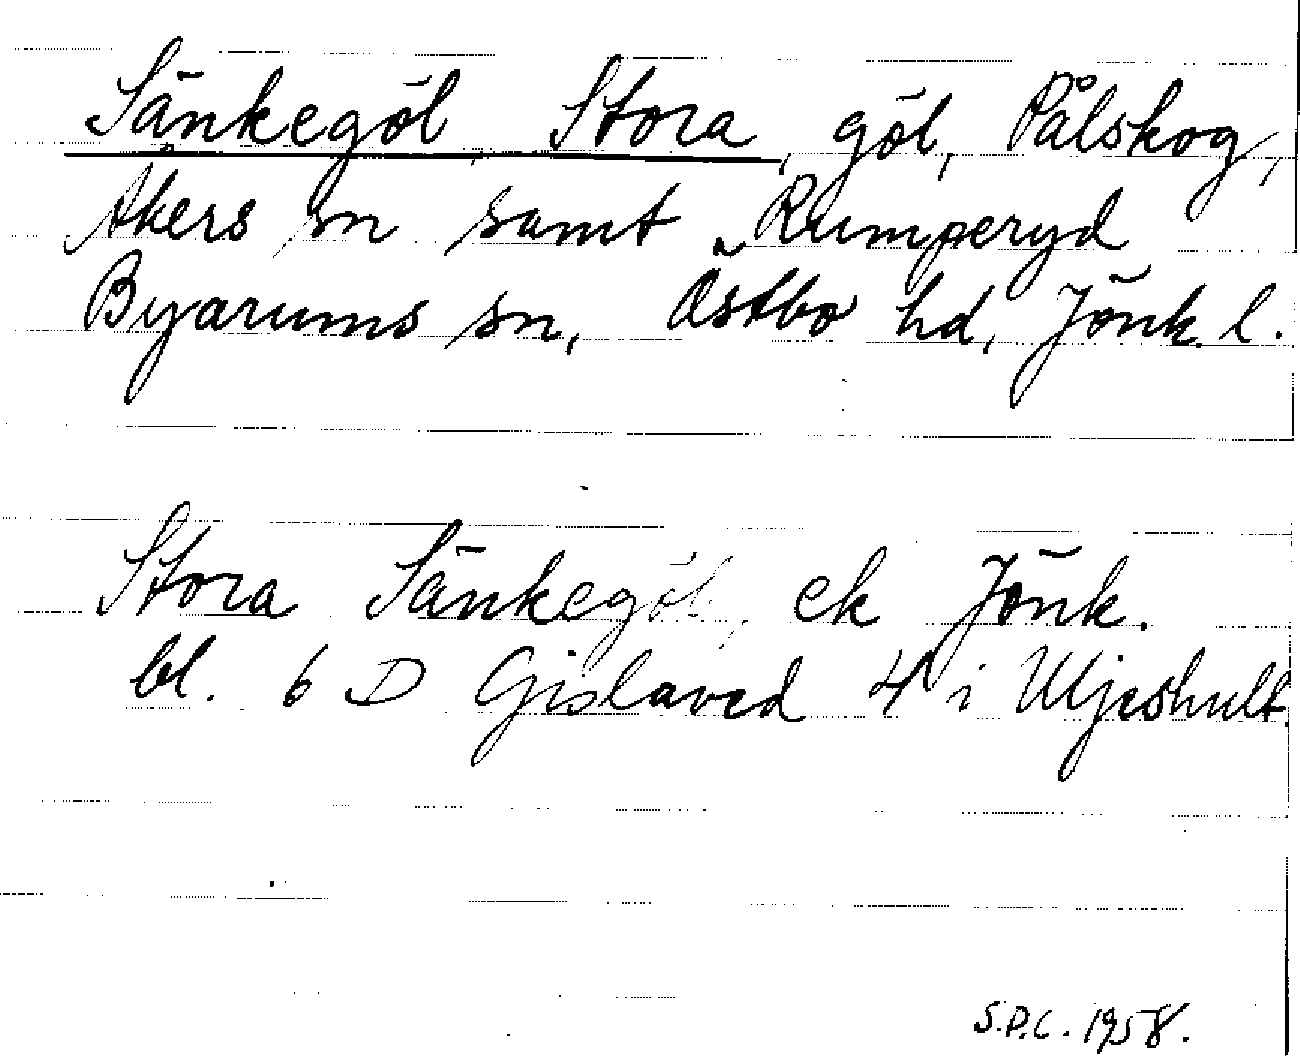 Sänkegöl, Stora, göl, Pålskog,
Åkers sn samt Rumperyd
Byarums sn, Östbo hd, Jönk. l.
Stora Sänkegöl, ek Jönk.
bl. 6 D Gislaved 4 i Uljeshult.
S.D.C. 1958.